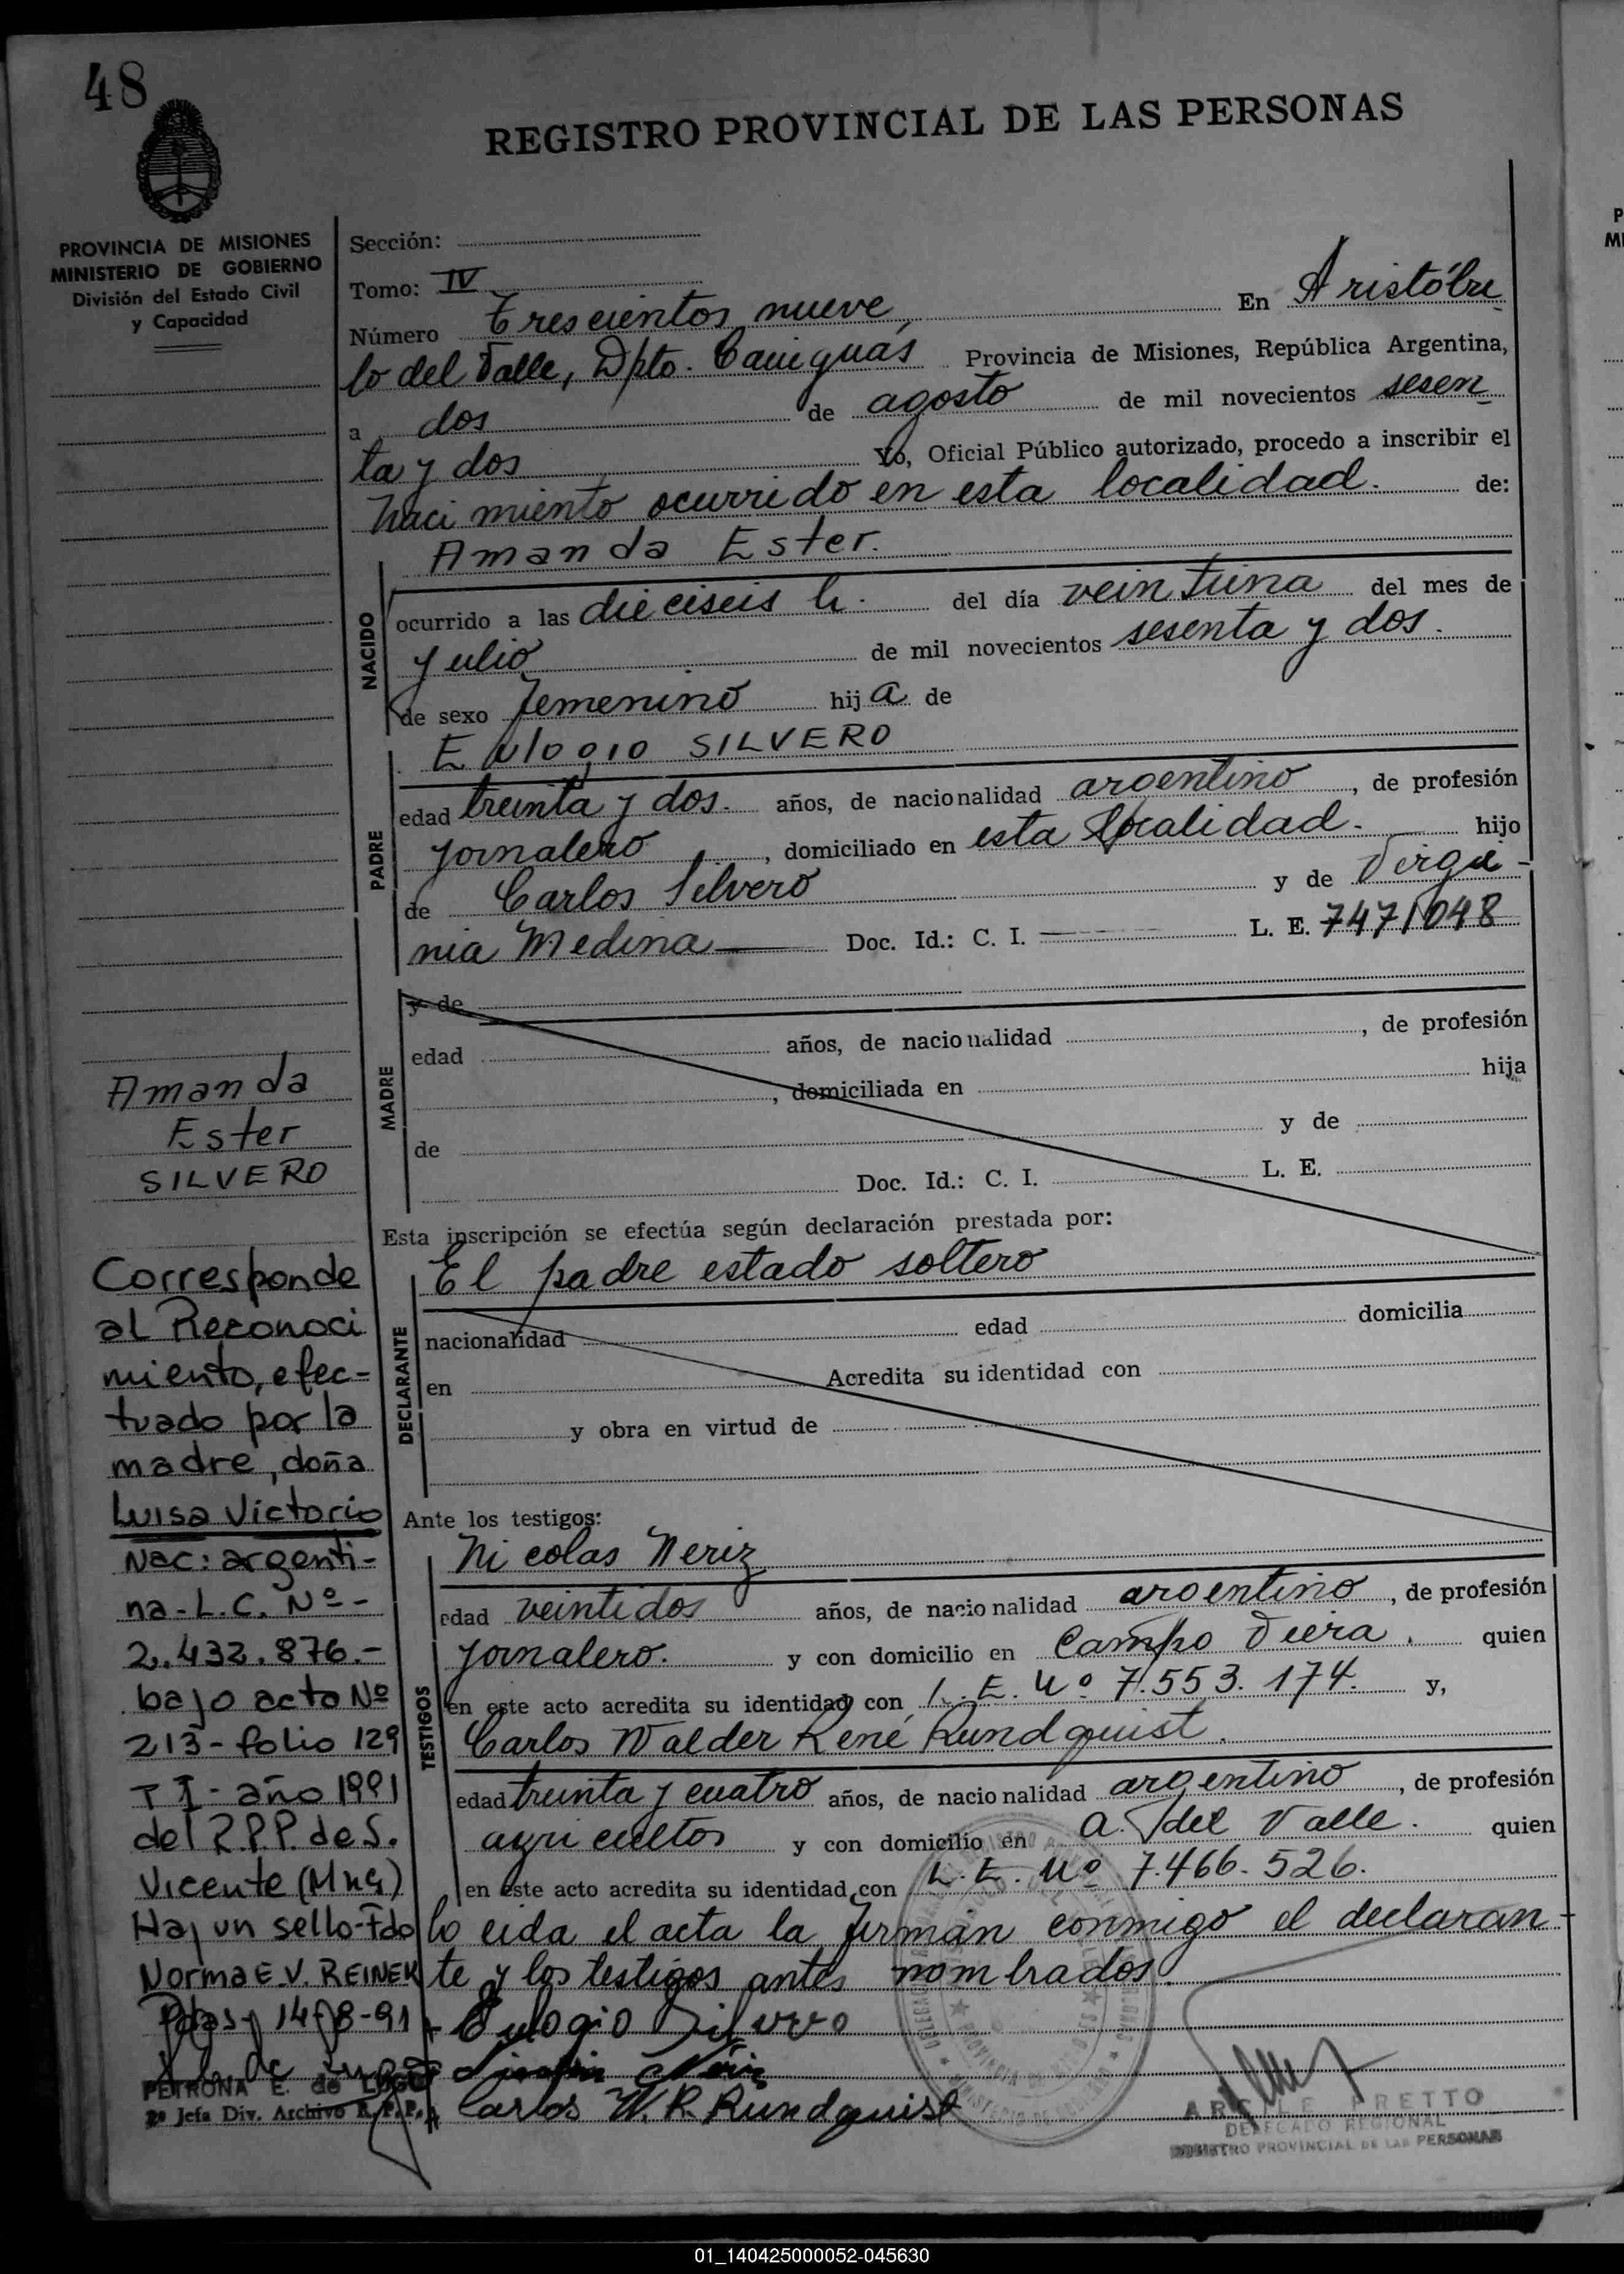 48
REGISTRO PROVINCIAL DE LAS PERSONAS
PROVINCIA DE MISIONES
MINISTERIO DE GOBIERNO
División del Estado Civil
y Capacidad
Sección:
Tomo: IV
Número Trescientos nueve, En Aristóbu
lo del Valle, Dpto. Cainguas Provincia de Misiones, República Argentina,
a dos de agosto de mil novecientos sesen
ta y dos Yo, Oficial Público autorizado, procedo a inscribir el
Naci miento ocurrido en esta localidad. de:
Amanda Ester.
NACIDO
ocurrido a las dieciseis h. del día veintiuna del mes de
Julio de mil novecientos sesenta y dos.
de sexo femenino hija de
Eulogio SILVERO
PADRE
edad treinta y dos. años, de nacionalidad argentino, de profesión
Jornalero, domiciliado en esta localidad. hijo
de Carlos Silvero y de Virgi-
nia Medina Doc. Id.: C. I. L. E. 7471048
MADRE
y de
edad años, de nacionalidad , de profesión
, domiciliada en hija
de y de
Doc. Id.: C. I. L. E.
Amanda
Ester
SILVERO
Esta inscripción se efectúa según declaración prestada por:
El padre estado soltero
DECLARANTE
nacionalidad edad domicilia
en Acredita su identidad con
y obra en virtud de
Ante los testigos:
TESTIGOS
Nicolas Neriz
edad veintidos años, de nacionalidad argentino, de profesión
Jornalero. y con domicilio en Campo Viera. quien
en este acto acredita su identidad con L. E. Nº 7.553.174. y,
Carlos Walder René Rundquist.
edad treinta y cuatro años, de nacionalidad argentino, de profesión
agricultor y con domicilio en A. del Valle. quien
en este acto acredita su identidad con L. E. Nº 7.466.526.
Corresponde
al Reconoci
miento, efec-
tuado por la
madre, doña
Luisa Victorio
Nac: argenti-
na - L.C. Nº -
2.432.876.-
bajo acto Nº
213 - folio 129
T I - año 1991
del R.P.P. de S.
Vicente (Mns)
Hay un sello-Fdo
Norma E.V. REINEK
Pdas, 14-8-91
PETRONA E. de LUGO
2ª Jefa Div. Archivo R.P.P.
lo eida el acta la firman conmigo el declaran-
te y los testigos antes nombrados.
Eulogio Silvero
Carlos W. R. Rundquist
PRETTO
DELEGADO REGIONAL
REGISTRO PROVINCIAL DE LAS PERSONAS
01_140425000052-045630